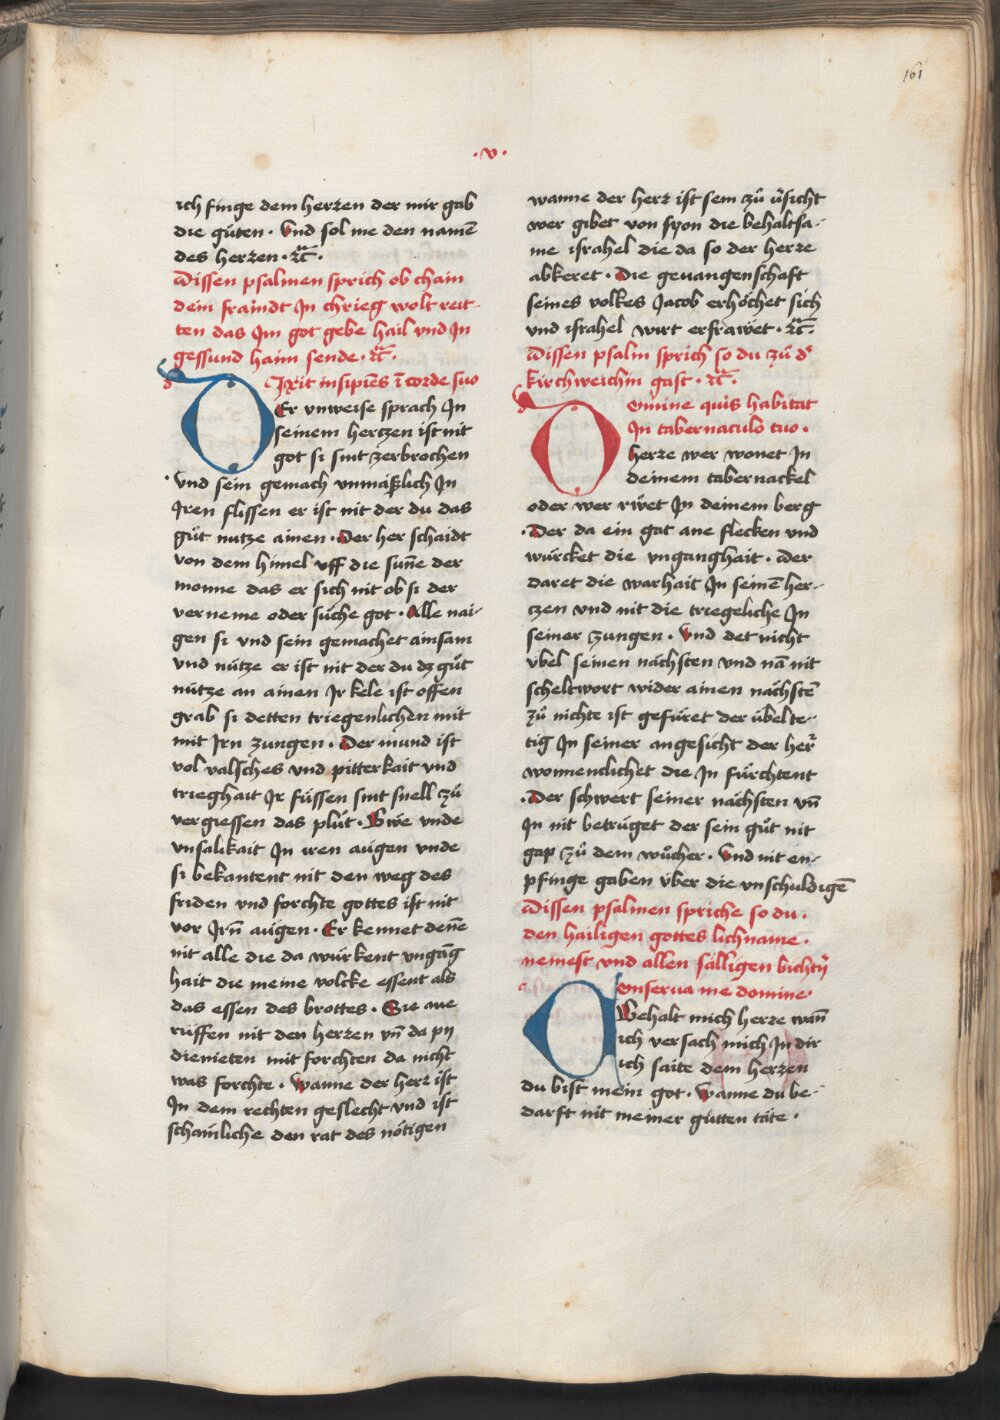 161
·v·
ich singe dem herren der mir gab
die güten · Vnd sol me den namē
des herzen · ꝛc̄ ·
Dissen psalmen sprich ob chain
dein fraindt In chrieg wolt reit-
ten das Im got gebe hail vnd In
gessund haim sende · ꝛc̄ ·
DIxit insipiēs ī corde suo
Er vnweise sprach In
seinem hertzen ist nit
got si sint zerbrochen
· Vnd sein gemach vnmäßlich In
Iren flissen er ist nit der du das
gůt nutze ainen · Der her schaidt
von dem himel vff die sun̄e der
monne das er sich nit ob si der
verneme oder süche got · Alle nai-
gen si vnd sein gemachet ainsam
vnd nütze er ist nit der du dz gůt
nütze an ainen Ir kele ist offen
grab si detten triegenlichen mit
mit Irn zungen · Der mund ist
vol valsches vnd pitterkait vnd
trieghait Ir füssen sint snell zů
vergiessen das plůt · Gwe vnde
vnsalikait In iren augen vnde
si bekantent nit den weg des
friden vnd forchte gottes ist nit
vor Irn̄ augen · Er kennet den̄e
nit alle die da würkent vngāg
hait die meine volcke essent als
das essen des brottes · Sie ane
rüffen nit den herzen vn̄ da py
dienieten mit forchten da nicht
was forchte · Wanne der herz ist
In dem rechten geslecht vnd ist
schamliche den rat des nötigen
wanne der herz ist sem zů v̈sicht
wer gibet von syon die behaltsa-
me israhel die da so der herze
abkeret · Die gevangenschaft
seines volkes Jacob erhöchet sich
vnd israhel wirt erfrawet · ꝛc̄ ·
Dissen psalm sprich so du zů dˢ
kirchweichin gast · ꝛc̄ ·
Domine quis habitat
In tabernaculo tuo ·
herze wer wonet In
deinem tabernackel
oder wer rüet In deinem berg
· Der da ein gat ane flecken vnd
würcket die vnganghait · Der
daret die warhait In seinē her-
czen vnd nit die triegeliche In
seiner zungen · Vnd det nicht
vbel seinen nächsten vnd nā nit
scheltwort wider ainen nächstē
zů nichte ist gefüret der übelte-
tig In seiner angesicht der her̄
wonnenclichet die In fürchtent
· Der schwert seiner nächsten vn̄
In nit betrüget der sein gůt nit
gap zů dem wůcher · Vnd nit en-
pfinge gaben über die vnschuldigē
Dissen psalmen spriche so du ·
den hailigen gottes lichname ·
nemest vnd allen sälligen bichtn̄
Conserua me domine ·
Behalt mich herze wan̄
ich versach mich In dir
ich saite dem herzen
du bist mein got · Wanne du be-
darft nit meiner gütten täte ·